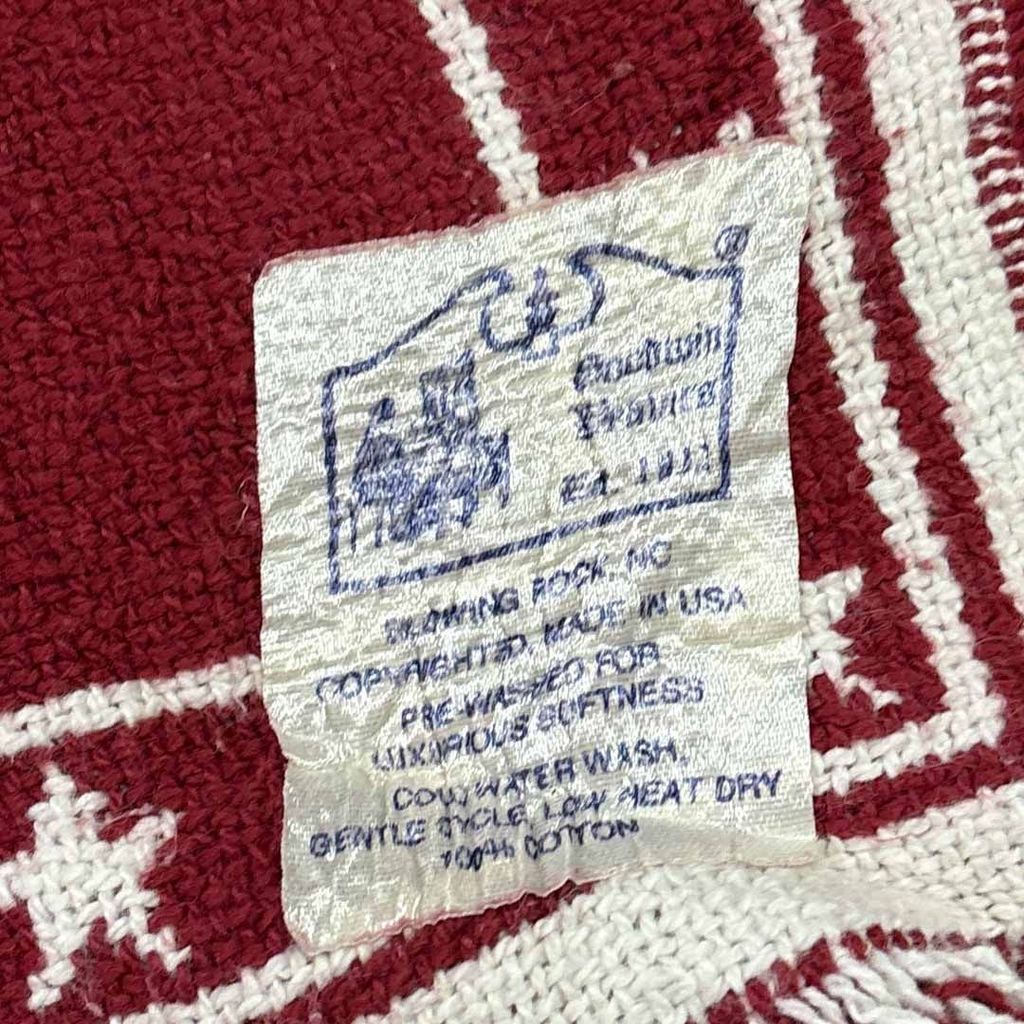 ®
Goodwin
Weavers
Est. 1812
BLOWING ROCK, NC
COPYRIGHTED, MADE IN USA
PRE-WASHED FOR
LUXURIOUS SOFTNESS
COLD WATER WASH,
GENTLE CYCLE, LOW HEAT DRY
100% COTTON